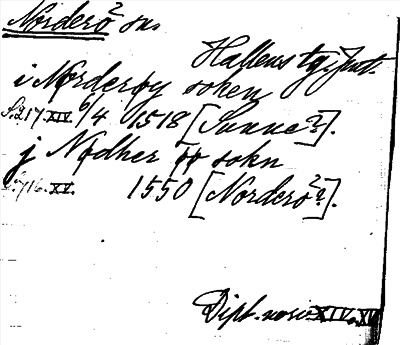 Norderö² sn.
Hallens tg, Jmt.
i Nørderøy soken
S. 217. XIV. 6/4 1518 [Sunne?].
j Nødher øø sokn
S. 716. XV. 1550 [Norderö²?].
Dipl. norv. XIV. XV